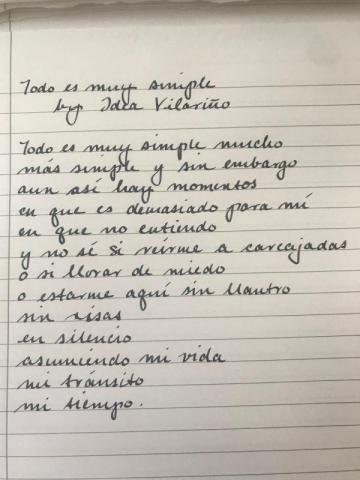 Todo es muy simple
by Idea Vilariño
Todo es muy simple mucho
más simple y sin embargo
aun así hay momentos
en que es demasiado para mí
en que no entiendo
y no sí si reírme a carcajadas
o si llorar de miedo
o estarme aquí sin llantro
sin risas
en silencio
asumiendo mi vida
mi tránsito
mi tiempo.